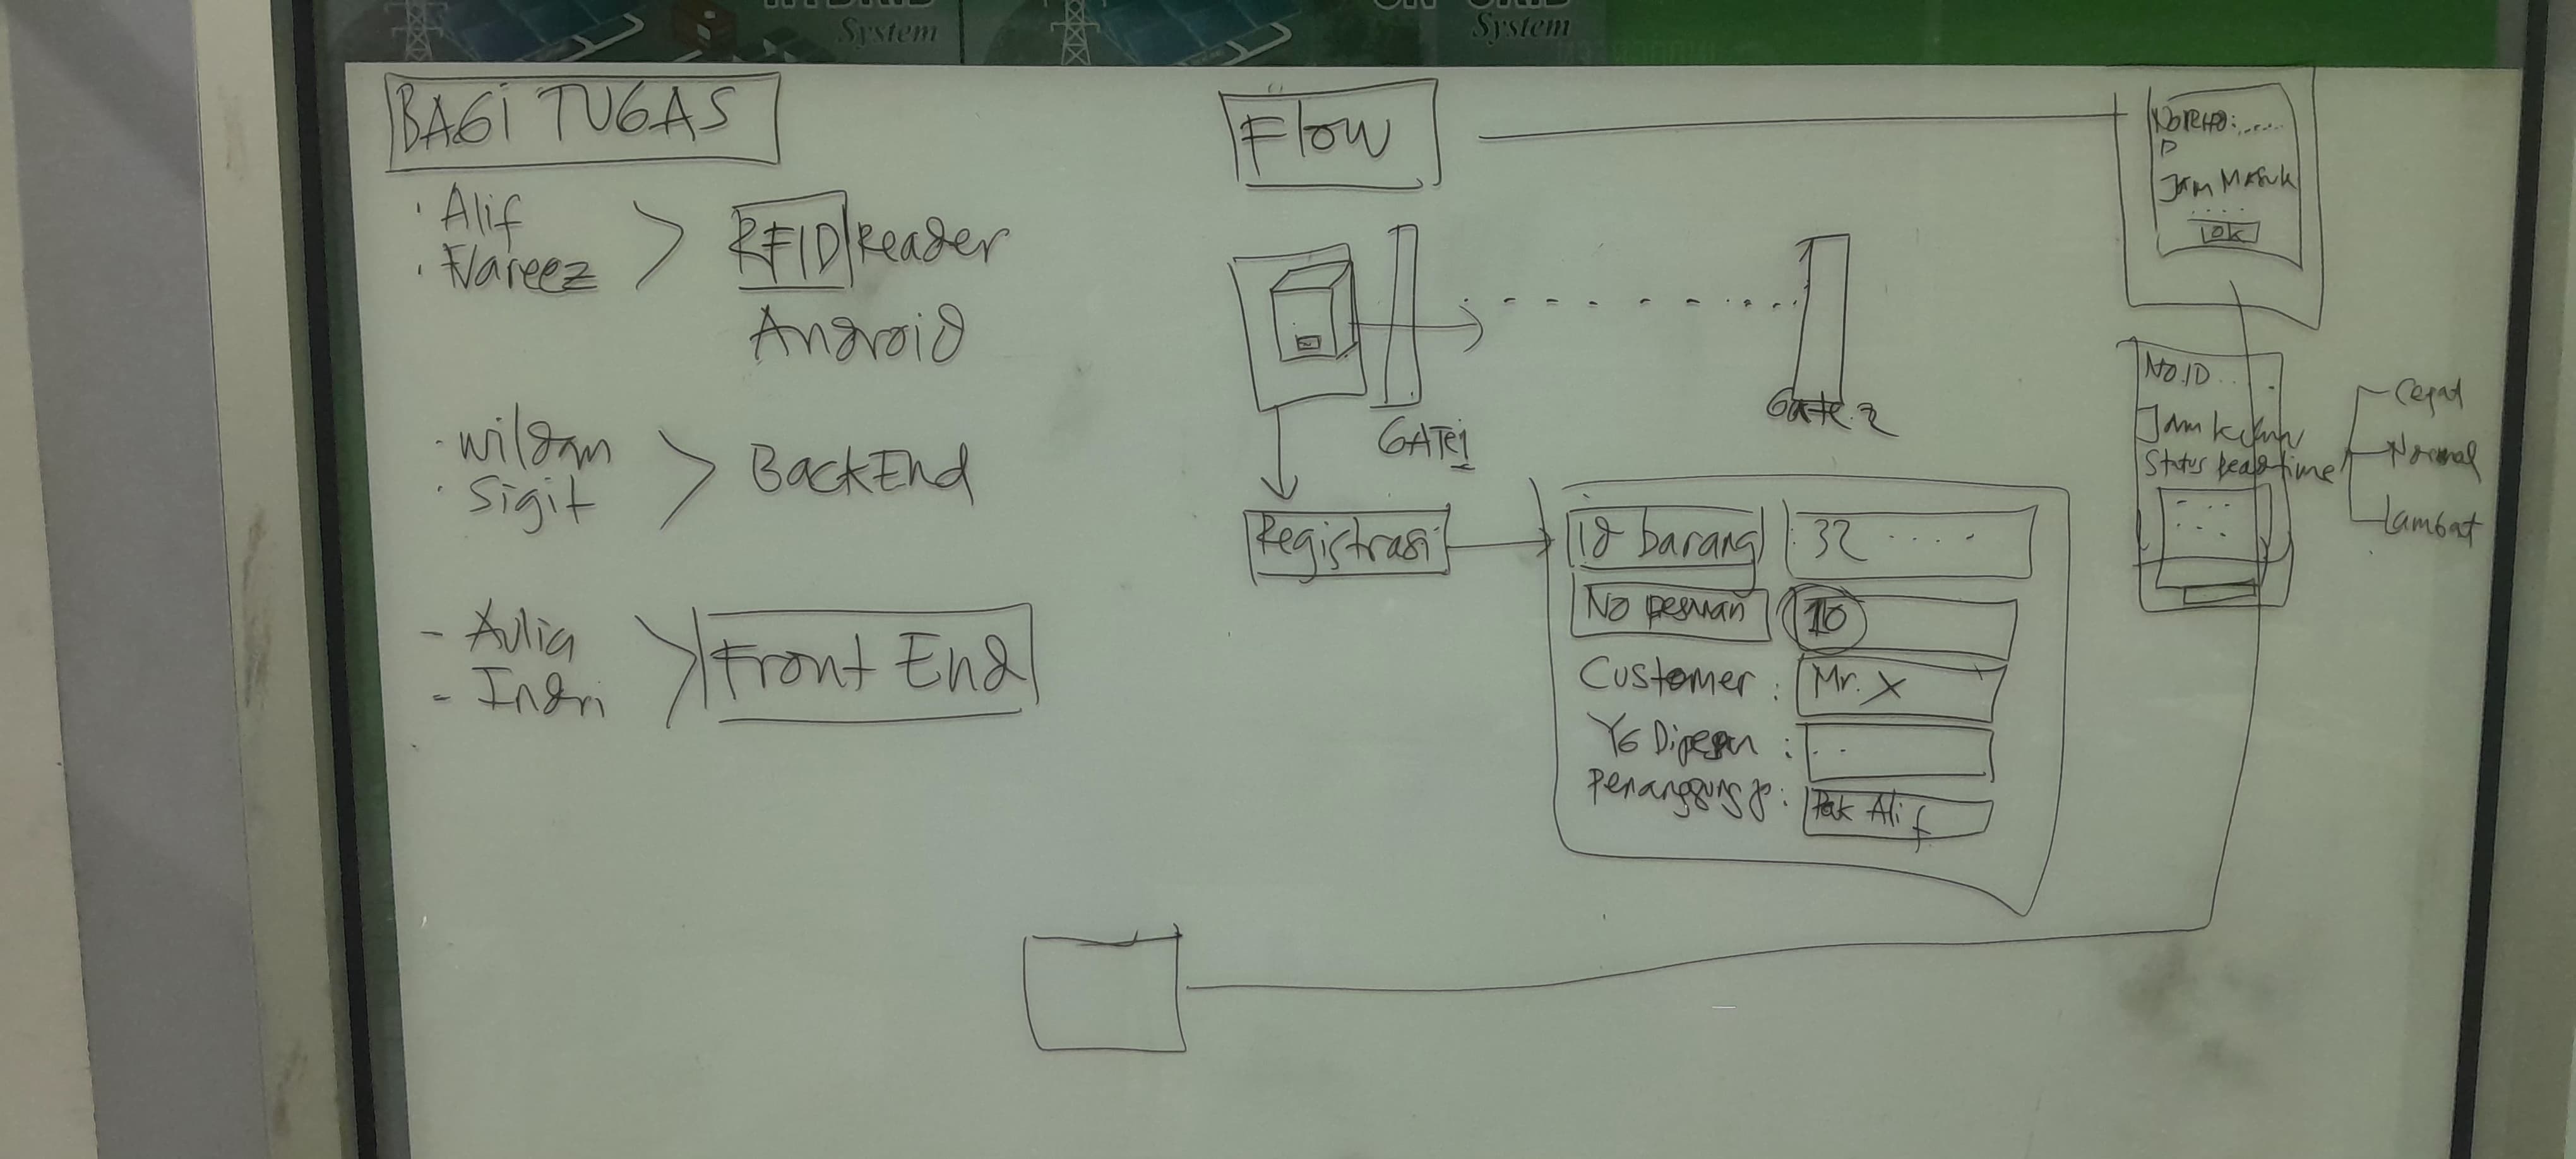 System
System
BAGi TUGAS
· Alif
· Nareez
RFID Reader
Android
· Wildan
· Sigit
BackEnd
- Aulia
- Indri
Front End
Flow
GATE1
Gate.2
Registrasi
Id barang
32 ....
No pesanan
10
Customer :
Mr. X
YG Dipesan :
. .
Penanggung jb :
Pak Alif
Jam Masuk
....
OK
No.ID ...
Jam keluar
Status Realtime
Cepat
Normal
Lambat